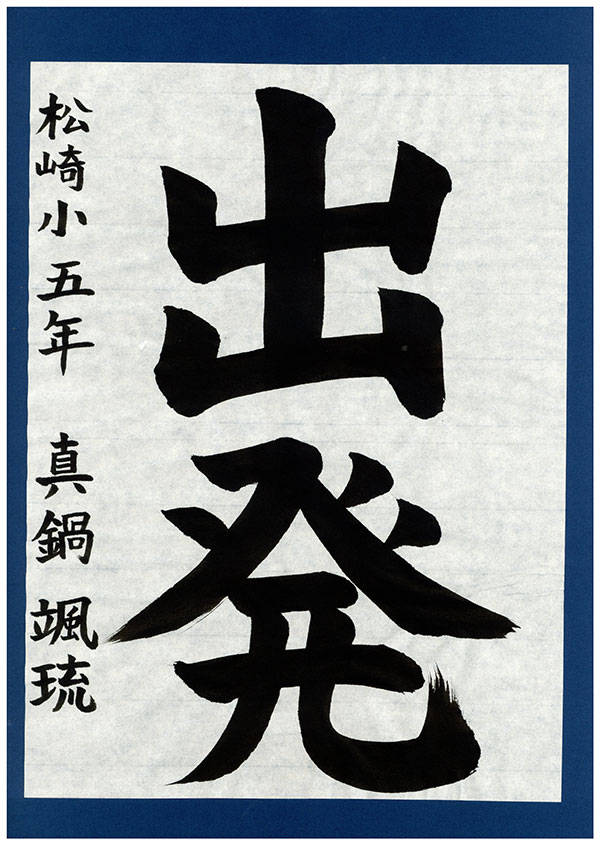 出発
松崎小五年 真鍋颯琉